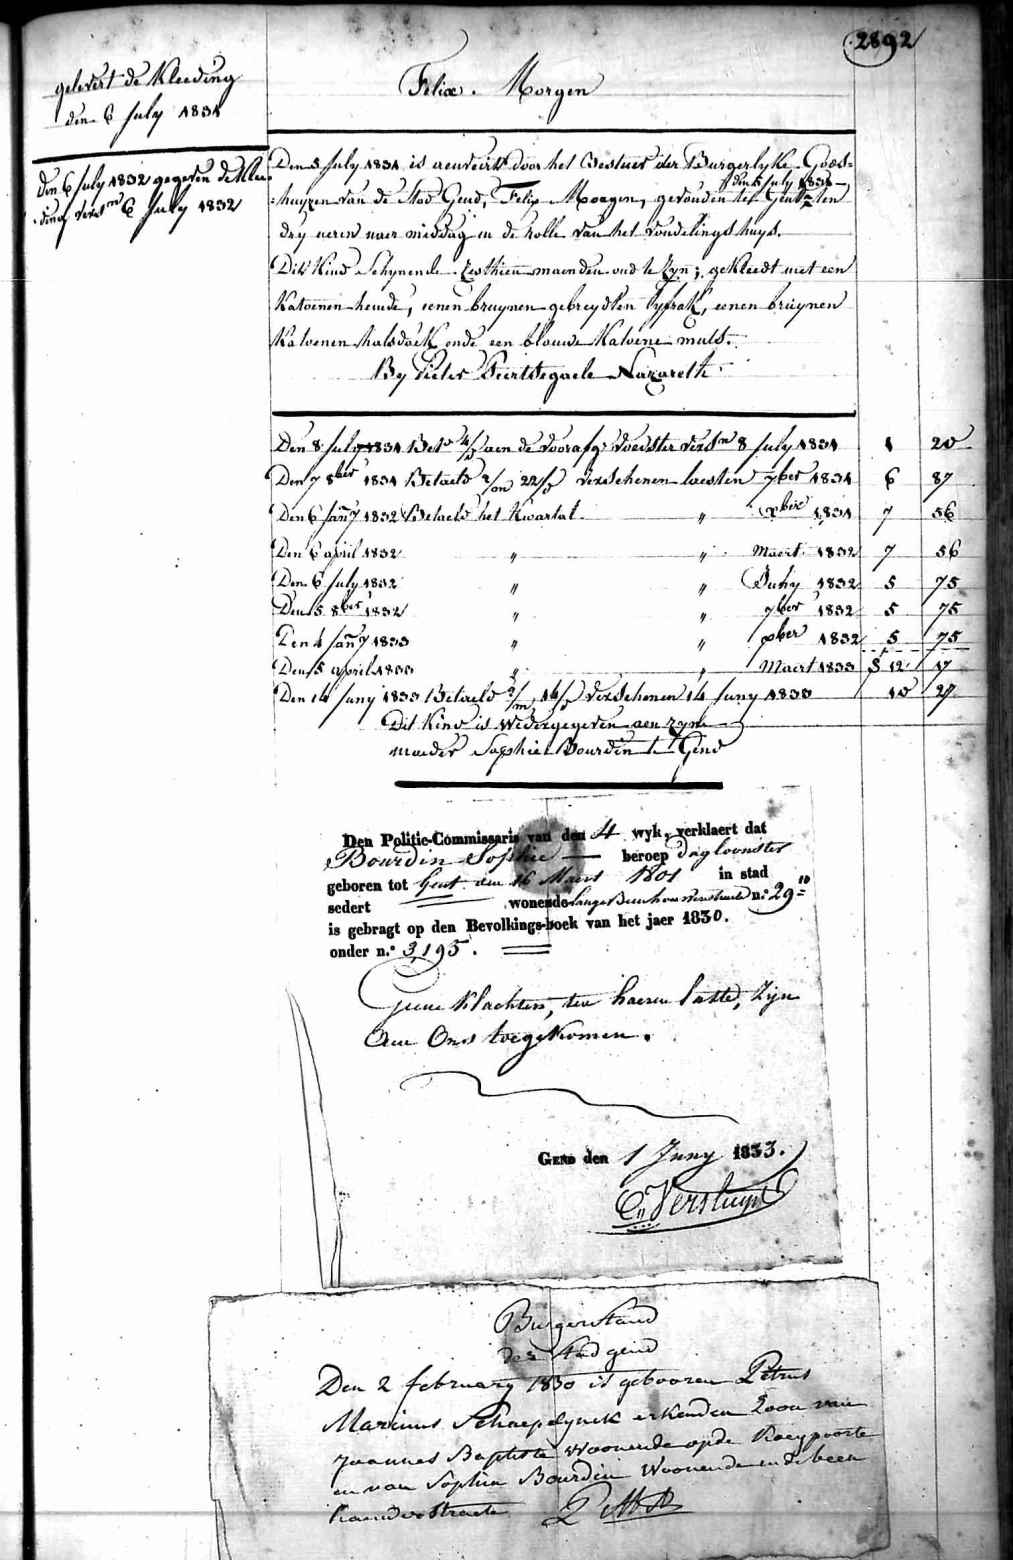 2892
gelevert de Kleeding
den 6 July 1831
den 6 July 1832 gegeven de Klee
ding versn 6 July 1832
Felix Morgen
Den 5 July 1831 is aenveird door het Bestuer der Burgerlyke Gods=
den 5 July 1831
=huyzen van de Stad Gend, Felix Morgen, gevonden tot Gend ten
dry ueren naer middag in de rolle van het vondelings huys.
Dit Kind Schynende Zesthien maenden oud te Zyn; gekleedt met een
Katoenen hemde, eenen bruynen gebreydten lyfrok, eenen bruynen
Katoenen halsdoek ende een blouwe Katoene muts.
By Pieter Nazareth
Den 8 July 1831 Bet aen de voorafg. voedster versn 8 July 1831 1 20
Den 7 8ber 1831 Betaeld 2/m 22/d verschenen laesten 7ber 1831 6 87
Den 6 Jany 1832 Betaeld het Kwartal. " xber 1831 7 56
Den 6 april 1832 " " Maert 1832 7 56
Den 6 July 1832 " " Juny 1832 5 75
Den 5 8ber 1832 " " 7ber 1832 5 75
Den 4 Jany 1833 " " xber 1832 5 75
Den 5 april 1833 " " Maert 1833 5 12 17
Den 14 Juny 1833 Betaeld 2/m 14/d verschenen 14 Juny 1833 10 27
Dit Kind is wedergegeven aen zyne
moeder Sophie Bourdin te Gend
Den Politie-Commissaris van den 4 wyk, verklaert dat
Bourdin Sophie — beroep dagloonster
geboren tot Gent den 16 Maert 1801 in stad
sedert wonende lange n.º 29
is gebragt op den Bevolkings-boek van het jaer 1830.
onder n.º 3,195.
Geene Klachten, ten haeren laste, Zijn
Aen Ons toegekomen.
Gend den 1 Juny 1833.
C. Verstuyft
Burgerstand
der stad gend
Den 2 february 1830 is gebooren Petrus
Marinus Schaepelynck erkenden Zoon van
Joannes Baptiste Woonende op de Koeypoorte
en van Sophia Bourdin Woonende in de been
houwerstraete